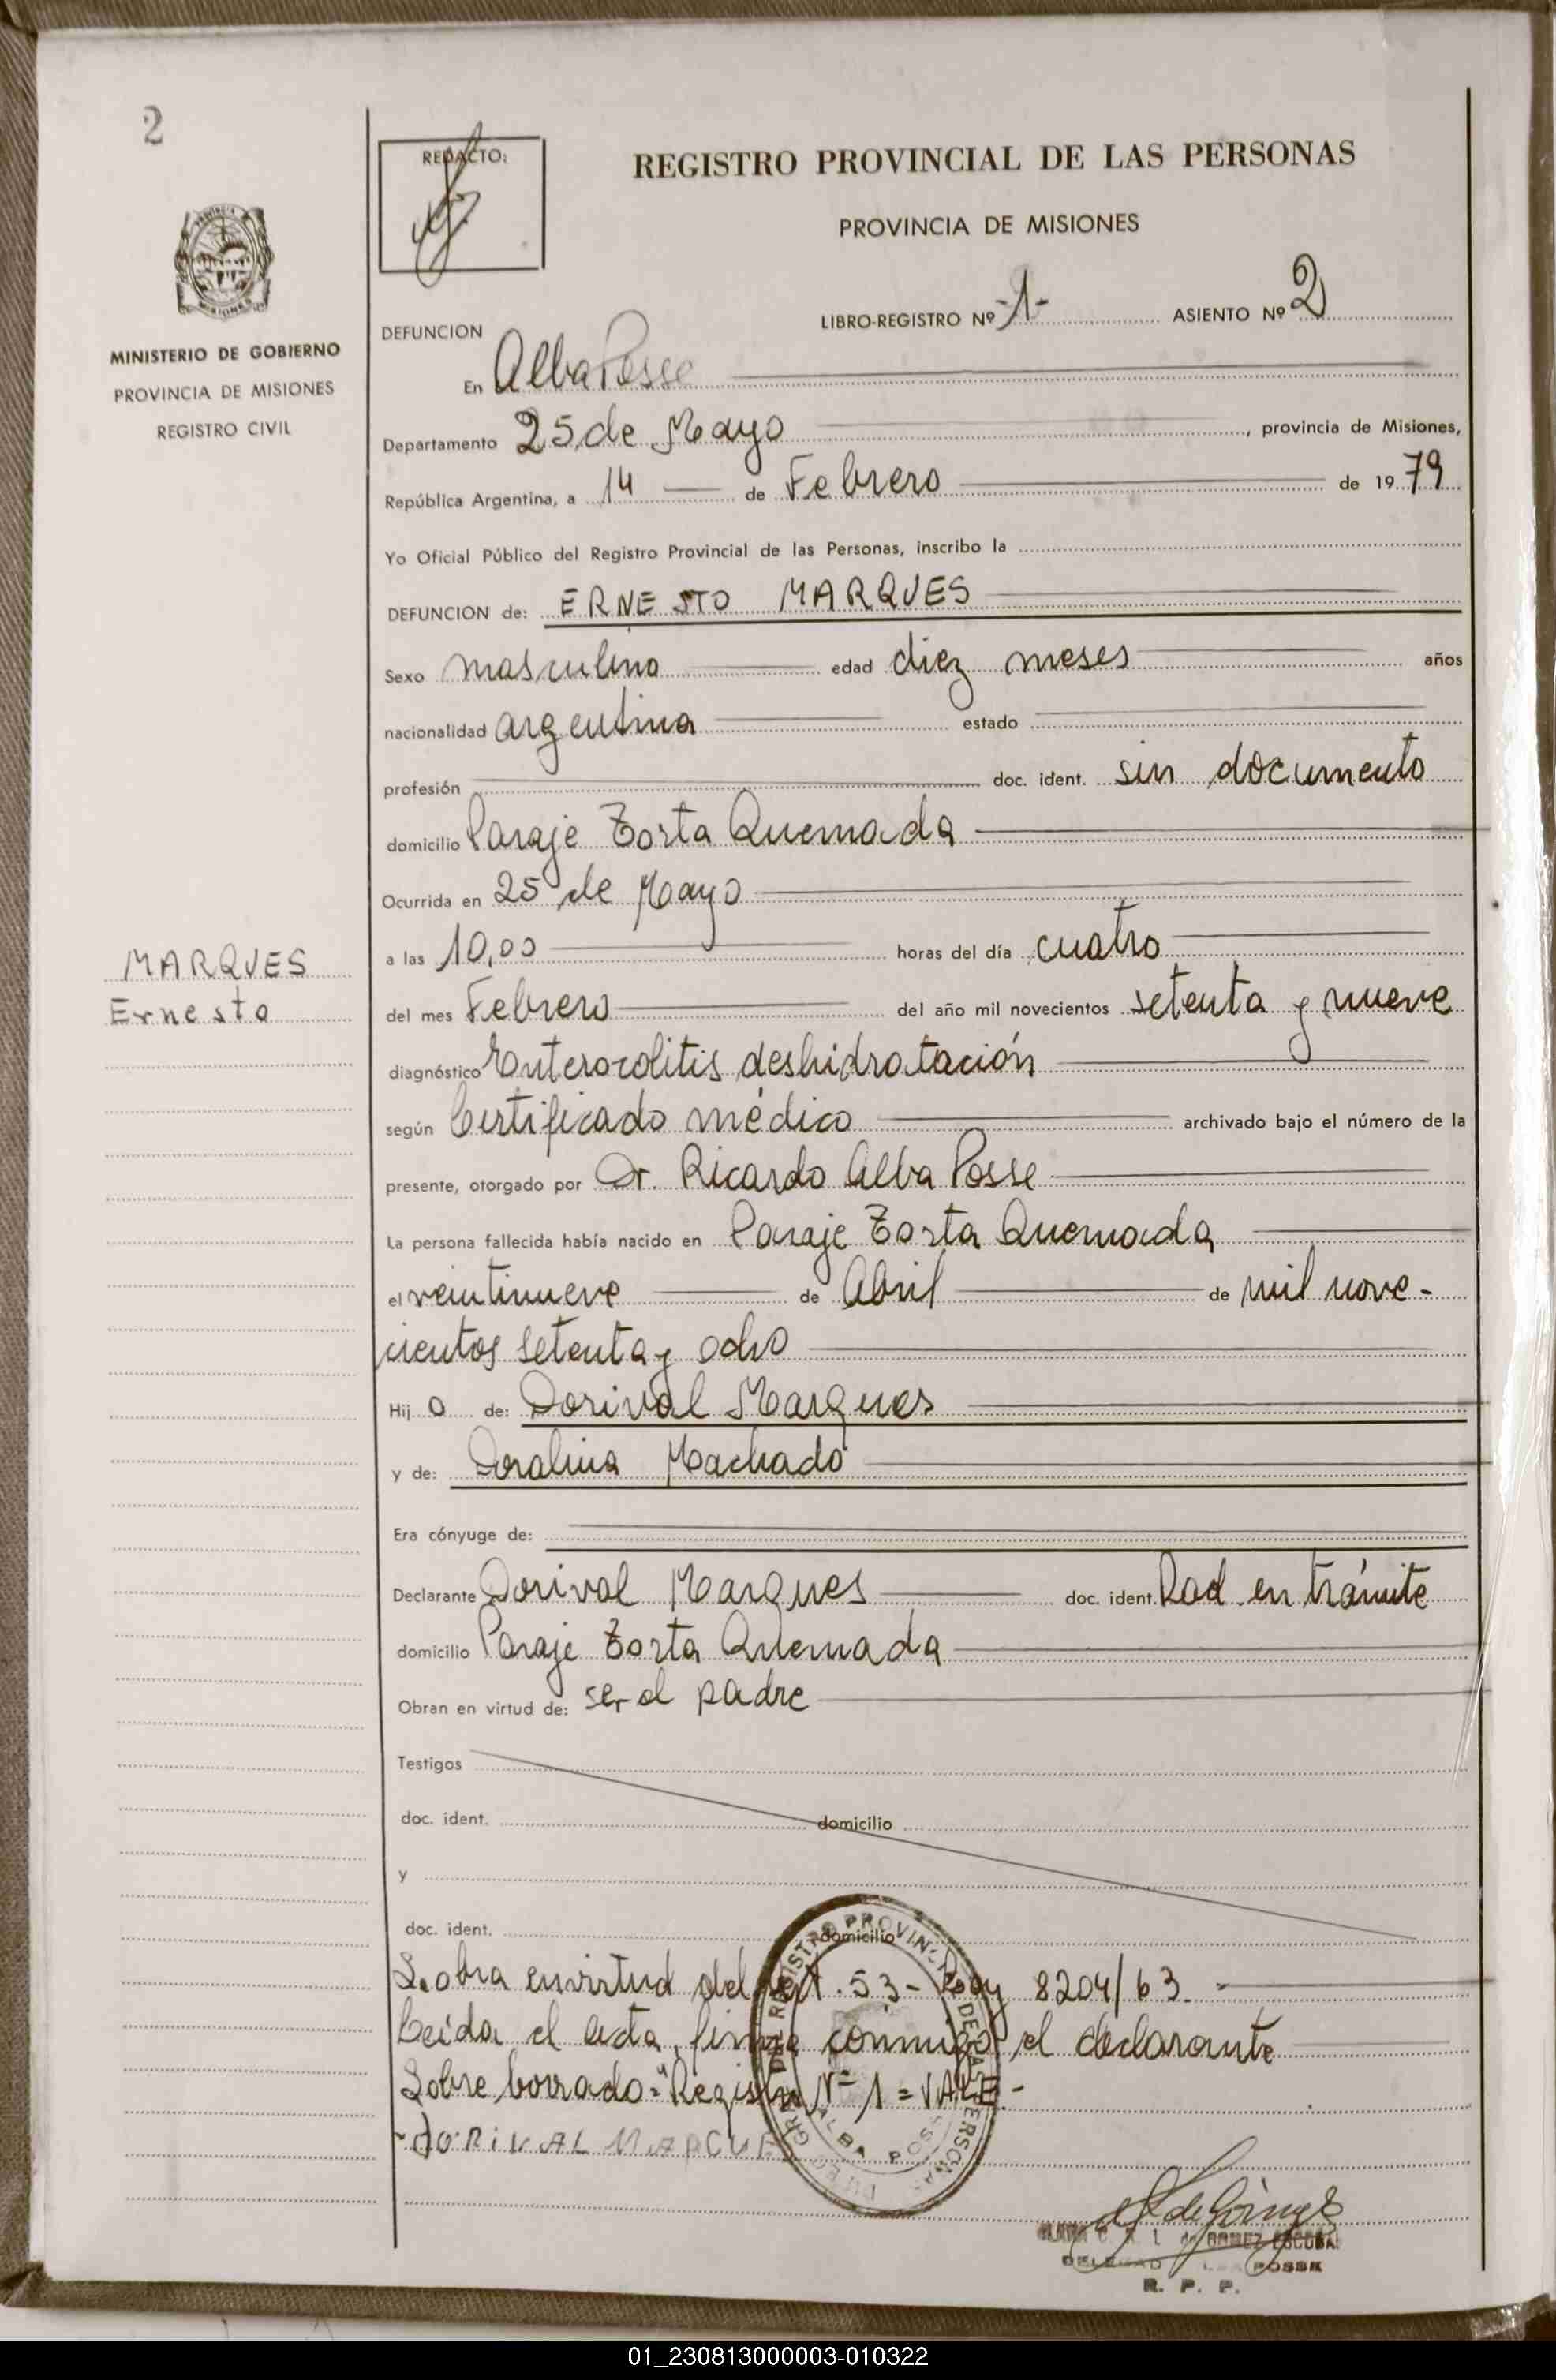 2
REDACTO:
REGISTRO PROVINCIAL DE LAS PERSONAS
PROVINCIA DE MISIONES
LIBRO-REGISTRO Nº -1- ASIENTO Nº 2
MINISTERIO DE GOBIERNO
PROVINCIA DE MISIONES
REGISTRO CIVIL
DEFUNCION
En Alba Posse
Departamento 25 de Mayo, provincia de Misiones,
República Argentina, a 14 de Febrero de 1979
Yo Oficial Público del Registro Provincial de las Personas, inscribo la
DEFUNCION de: ERNESTO MARQUES
Sexo masculino edad diez meses años
nacionalidad argentina estado
profesión doc. ident. sin documento
domicilio Paraje Torta Quemada
Ocurrida en 25 de Mayo
MARQUES
Ernesto
a las 10,00 horas del día cuatro
del mes Febrero del año mil novecientos setenta y nueve
diagnóstico Enterocolitis deshidratación
según Certificado médico archivado bajo el número de la
presente, otorgado por Dr. Ricardo Alba Posse
La persona fallecida había nacido en Paraje Torta Quemada
el veintinueve de Abril de mil nove-
cientos setenta y ocho
Hijo de: Dorival Marques
y de: Doralina Machado
Era cónyuge de:
Declarante Dorival Marques doc. ident. Rad. en trámite
domicilio Paraje Torta Quemada
Obran en virtud de: ser el padre
Testigos
doc. ident. domicilio
y
doc. ident. domicilio
S. obra en virtud del Art. 53 - Ley 8204/63. -
Leída el acta, firma conmigo el declarante
Sobre borrado="Registro Nº 1 = VALE -
DORIVAL MARQUE
REGISTRO PROVINCIAL DE LAS PERSONAS
ALBA POSSE
GOMEZ ESCOBA
POSSE
R. P. P.
01_230813000003-010322